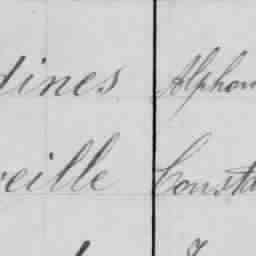 dines Alphon
eille Consta